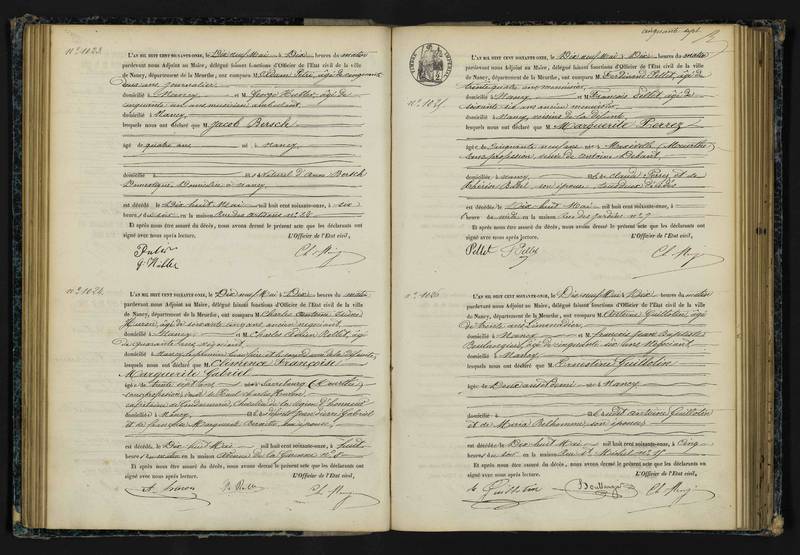 N° 1023.
L'AN MIL HUIT CENT SOIXANTE-ONZE, le Dix neuf Mai à Dix heures du matin
pardevant nous Adjoint au Maire, délégué faisant fonctions d'Officier de l'Etat civil de la ville
de Nancy, département de la Meurthe, ont comparu M. Adam âgé de cinquante
deux ans journalier
domicilié à Nancy et M. George Hubler, âgé de
cinquante un ans musicien ambulant
domicilié à Nancy
lesquels nous ont déclaré que M. Jacob Bersch
âgé de quatre ans né à Nancy
domicilié à naturel d'Anna Bersch
Domestique, Domiciliée à Nancy
est décédé le Dix huit Mai mil huit cent soixante-onze, à six
heures du soir en la maison rue des artisans n° 28
Et après nous être assuré du décès, nous avons dressé le présent acte que les déclarants ont
signé avec nous après lecture. L'Officier de l'Etat civil,
N° 1024.
L'AN MIL HUIT CENT SOIXANTE-ONZE, le Dix neuf Mai à Dix heures du matin
pardevant nous Adjoint au Maire, délégué faisant fonctions d'Officier de l'Etat civil de la ville
de Nancy, département de la Meurthe, ont comparu M. Charles antoine
âgé de soixante cinq ans ancien négociant
domicilié à Nancy et M. Charles Rollet, âgé
de quarante deux négociant
domicilié à Nancy, le premier beau père et le second ami de la défunte,
lesquels nous ont déclaré que M. Clémence Françoise
Marguerite Gabriel
âgée de trente sept ans née à Sarrebourg (Meurthe)
sans profession, de Paul Charles
capitaine de Gendarmerie, Chevalier de la légion d'honneur
domiciliée à Nancy fille de défunt Jean Pierre Gabriel
et de françoise Marguerite son épouse
est décédée le Dix huit Mai mil huit cent soixante-onze, à huit
heures du matin en la maison
Et après nous être assuré du décès, nous avons dressé le présent acte que les déclarants ont
signé avec nous après lecture. L'Officier de l'Etat civil,
cinquante sept
TIMBRE IMPERIAL
N° 1025
L'AN MIL HUIT CENT SOIXANTE-ONZE, le Dix neuf Mai à Dix heures du matin
pardevant nous Adjoint au Maire, délégué faisant fonctions d'Officier de l'Etat civil de la ville
de Nancy, département de la Meurthe, ont comparu M. Ferdinand Pellet, âgé de
trente quatre ans menuisier
domicilié à Nancy et M. François Pellet âgé de
soixante dix ans ancien menuisier
domicilié à Nancy, voisins de la défunte
lesquels nous ont déclaré que M. Marguerite Pierrez
âgée de Cinquante neuf ans née à Maxéville (Meurthe)
sans profession veuve de antoine
domiciliée à Nancy fille de Claude Pierrez et de
son épouse, tous deux décédés
est décédée le Dix huit Mai mil huit cent soixante-onze, à
heure du midi en la maison rue des jardins n° 7
Et après nous être assuré du décès, nous avons dressé le présent acte que les déclarants ont
signé avec nous après lecture. L'Officier de l'Etat civil,
Pellet F Pellet
N° 1026
L'AN MIL HUIT CENT SOIXANTE-ONZE, le Dix neuf Mai à Dix heures du matin
pardevant nous Adjoint au Maire, délégué faisant fonctions d'Officier de l'Etat civil de la ville
de Nancy, département de la Meurthe, ont comparu M. Antoine Guillotin, âgé
de trente ans Limonadier
domicilié à Nancy et M. françois Jean Baptiste
Boulangier, âgé de cinquante six ans Négociant
domicilié à Nancy
lesquels nous ont déclaré que M. Ernestine Guillotin
âgée de Deux ans et demi née à Nancy
domiciliée à fille dudit antoine Guillotin
et de Maria Bethmann son épouse
est décédée le Dix huit Mai mil huit cent soixante-onze, à Cinq
heures du soir en la maison Rue St Michel n° 25
Et après nous être assuré du décès, nous avons dressé le présent acte que les déclarants ont
signé avec nous après lecture. L'Officier de l'Etat civil,
Guillotin Boulangier